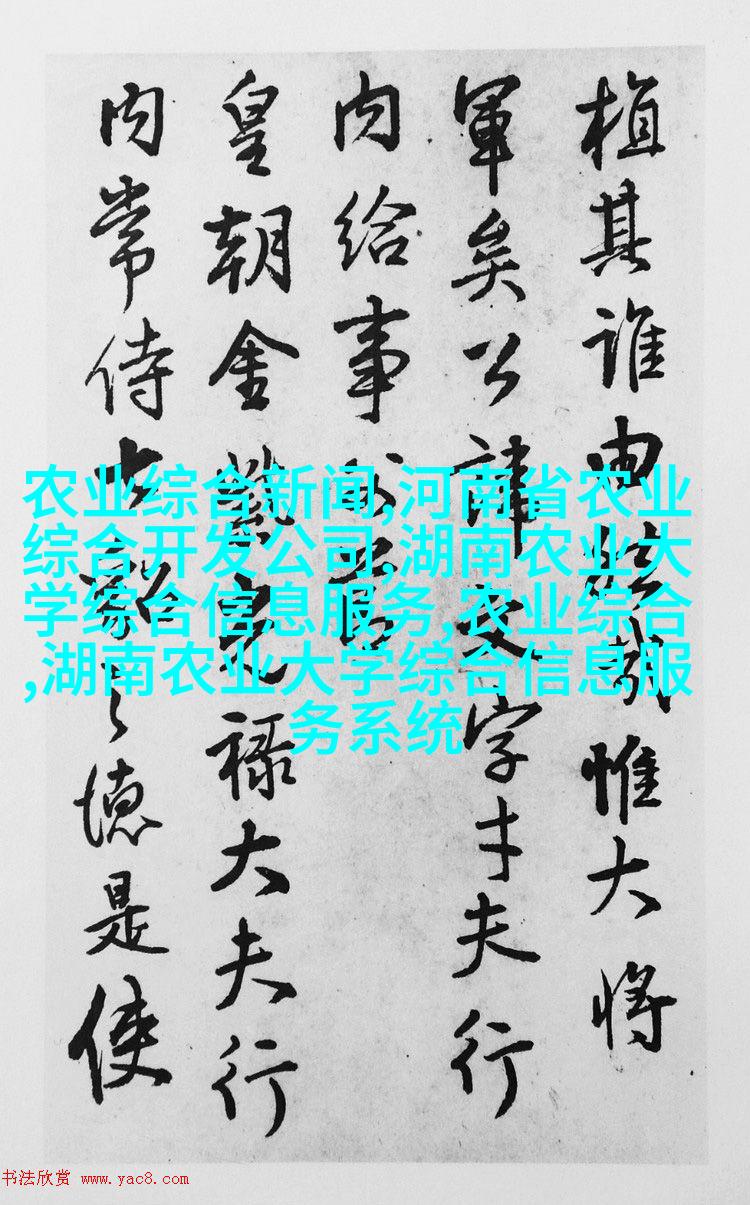 植其誰由哉惟大將
軍矣公諱文字才夫行
內給事
皇朝金紫光祿大夫行
內常侍之德是使
农业综合新闻,河南省农业
综合开发公司,湖南农业大
学综合信息服务,农业综合
,湖南农业大学综合信息服
务系统
书法欣赏 www.yac8.com